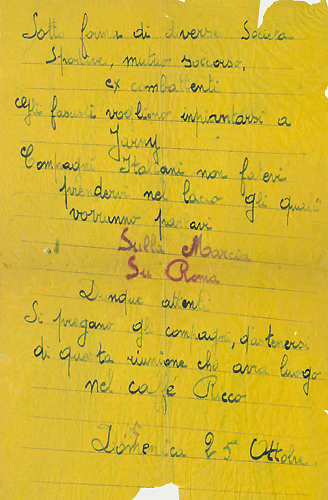 Sotto forma di diverse Società
Sportive, mutuo soccorso,
ex combattenti
Gli fascisti vogliono inpiantarsi a
Jarny
Compagni Italiani non fatevi
prendervi nel lacio "gli quali"
vorrunno parlare
Sulla Marcia
Su Roma
Dunque attenti
Si pregano gli compagni, d'astenersi
di questa riunione che avra luogo
nel caffe Ricco
Domenica 25 Ottobre